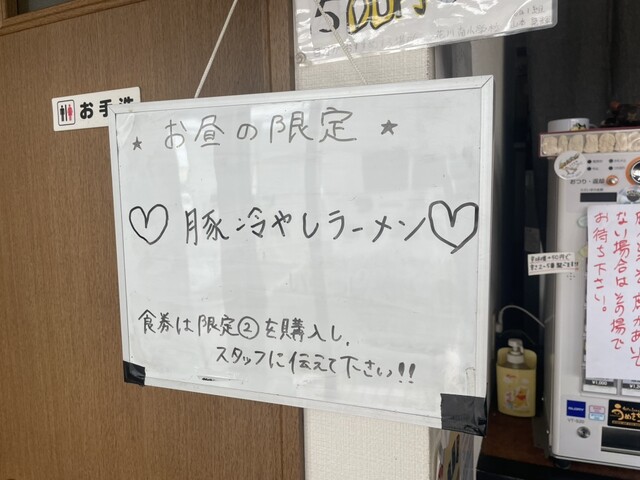 500円
お手洗
★ お昼の限定 ★
♡ 豚冷やしラーメン ♡
食券は限定②を購入し、
スタッフに伝えて下さい!!
おつり・返却
ない場合はその場で
お待ち下さい。